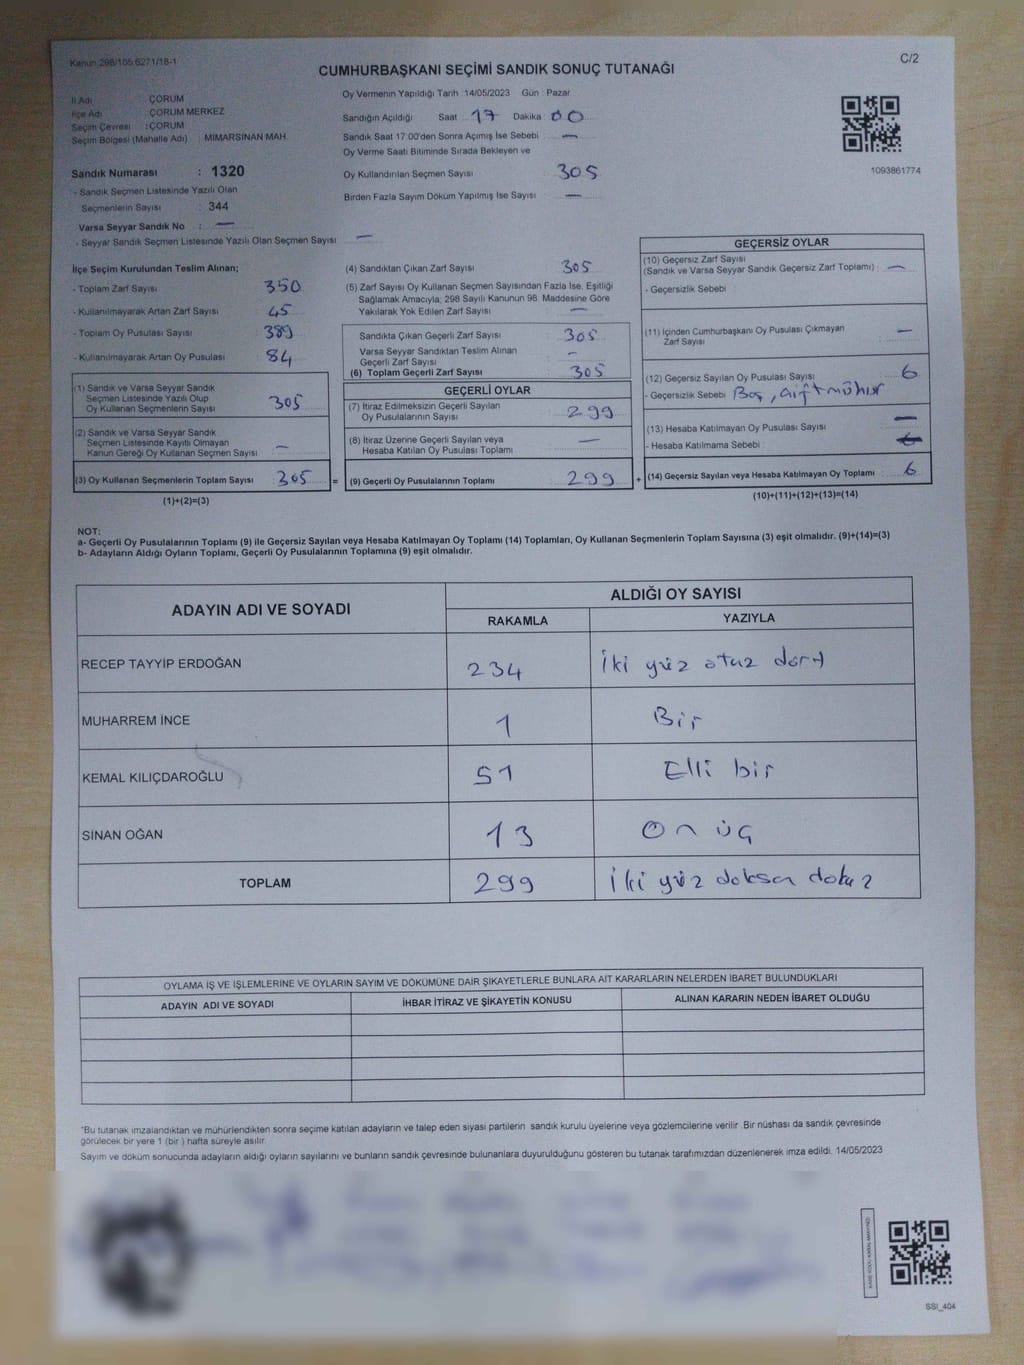 Kanun:298/105.6271/18-1
C/2
CUMHURBAŞKANI SEÇİMİ SANDIK SONUÇ TUTANAĞI
İl Adı : ÇORUM
İlçe Adı : ÇORUM MERKEZ
Seçim Çevresi : ÇORUM
Seçim Bölgesi (Mahalle Adı) : MİMARSİNAN MAH.
Sandık Numarası : 1320
- Sandık Seçmen Listesinde Yazılı Olan
Seçmenlerin Sayısı : 344
Varsa Seyyar Sandık No : —
- Seyyar Sandık Seçmen Listesinde Yazılı Olan Seçmen Sayısı —
Oy Vermenin Yapıldığı Tarih :14/05/2023 Gün : Pazar
Sandığın Açıldığı Saat 17 Dakika : 00
Sandık Saat 17:00'den Sonra Açımış İse Sebebi : —
Oy Verme Saati Bitiminde Sırada Bekleyen ve
Oy Kullandırılan Seçmen Sayısı 305
Birden Fazla Sayım Döküm Yapılmış İse Sayısı —
1093861774
İlçe Seçim Kurulundan Teslim Alınan;
- Toplam Zarf Sayısı 350
- Kullanılmayarak Artan Zarf Sayısı 45
- Toplam Oy Pusulası Sayısı 389
- Kullanılmayarak Artan Oy Pusulası 84
(1) Sandık ve Varsa Seyyar Sandık
Seçmen Listesinde Yazılı Olup
Oy Kullanan Seçmenlerin Sayısı 305
(2) Sandık ve Varsa Seyyar Sandık
Seçmen Listesinde Kayıtlı Olmayan
Kanun Gereği Oy Kullanan Seçmen Sayısı —
(3) Oy Kullanan Seçmenlerin Toplam Sayısı : 305 =
(1)+(2)=(3)
(4) Sandıktan Çıkan Zarf Sayısı 305
(5) Zarf Sayısı Oy Kullanan Seçmen Sayısından Fazla İse, Eşitliği
Sağlamak Amacıyla; 298 Sayılı Kanunun 98. Maddesine Göre
Yakılarak Yok Edilen Zarf Sayısı —
Sandıkta Çıkan Geçerli Zarf Sayısı 305
Varsa Seyyar Sandıktan Teslim Alınan
Geçerli Zarf Sayısı —
(6) Toplam Geçerli Zarf Sayısı 305
GEÇERLİ OYLAR
(7) İtiraz Edilmeksizin Geçerli Sayılan
Oy Pusulalarının Sayısı 299
(8) İtiraz Üzerine Geçerli Sayılan veya
Hesaba Katılan Oy Pusulası Toplamı —
(9) Geçerli Oy Pusulalarının Toplamı 299 +
GEÇERSİZ OYLAR
(10) Geçersiz Zarf Sayısı
(Sandık ve Varsa Seyyar Sandık Geçersiz Zarf Toplamı) —
- Geçersizlik Sebebi :
(11) İçinden Cumhurbaşkanı Oy Pusulası Çıkmayan
Zarf Sayısı —
(12) Geçersiz Sayılan Oy Pusulası Sayısı 6
- Geçersizlik Sebebi Boş, çift mühür
(13) Hesaba Katılmayan Oy Pusulası Sayısı —
- Hesaba Katılmama Sebebi :
(14) Geçersiz Sayılan veya Hesaba Katılmayan Oy Toplamı 6
(10)+(11)+(12)+(13)=(14)
NOT:
a- Geçerli Oy Pusulalarının Toplamı (9) ile Geçersiz Sayılan veya Hesaba Katılmayan Oy Toplamı (14) Toplamları, Oy Kullanan Seçmenlerin Toplam Sayısına (3) eşit olmalıdır. (9)+(14)=(3)
b- Adayların Aldığı Oyların Toplamı, Geçerli Oy Pusulalarının Toplamına (9) eşit olmalıdır.
ADAYIN ADI VE SOYADI
ALDIĞI OY SAYISI
RAKAMLA YAZIYLA
RECEP TAYYİP ERDOĞAN 234 İki yüz otuz dört
MUHARREM İNCE 1 Bir
KEMAL KILIÇDAROĞLU 51 Elli bir
SİNAN OĞAN 13 On üç
TOPLAM 299 İki yüz doksan dokuz
OYLAMA İŞ VE İŞLEMLERİNE VE OYLARIN SAYIM VE DÖKÜMÜNE DAİR ŞİKAYETLERLE BUNLARA AİT KARARLARIN NELERDEN İBARET BULUNDUKLARI
ADAYIN ADI VE SOYADI İHBAR İTİRAZ VE ŞİKAYETİN KONUSU ALINAN KARARIN NEDEN İBARET OLDUĞU
*Bu tutanak imzalandıktan ve mühürlendikten sonra seçime katılan adayların ve talep eden siyasi partilerin sandık kurulu üyelerine veya gözlemcilerine verilir. Bir nüshası da sandık çevresinde
görülecek bir yere 1 (bir ) hafta süreyle asılır.
Sayım ve döküm sonucunda adayların aldığı oyların sayılarını ve bunların sandık çevresinde bulunanlara duyurulduğunu gösteren bu tutanak tarafımızdan düzenlenerek imza edildi. 14/05/2023
SSI_404